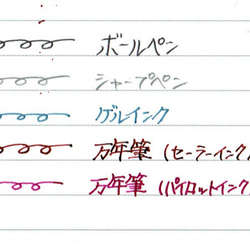 ボールペン
シャープペン
ゲルインク
万年筆(セーラーインク)
万年筆(パイロットインク)